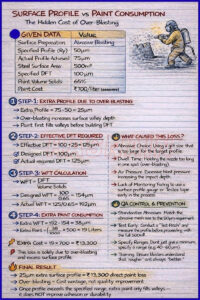 SURFACE PROFILE vs PAINT CONSUMPTION
The Hidden Cost of Over-Blasting
GIVEN DATA
Value
Surface Preparation Abrasive Blasting
Specified Profile (Ry) 50μm
Actual Profile Achieved 75μm
Steel Surface Area 500m²
Specified DFT 100μm
Paint Volume Solids 65%
Paint Cost ₹700/liter
STEP-1: EXTRA PROFILE DUE TO OVER-BLASTING
Extra Profile = 75-50 = 25μm
Over-blasting increases surface valley depth
Paint first fills valleys before building DFT
STEP-2: EFFECTIVE DFT REQUIRED
Effective DFT = 100+25 = 125μm
Designed DFT = 100μm
Actual required DFT = 125μm
STEP-3: WFT CALCULATION
WFT = DFT
Volume Solids
Designed WFT = 100
= 154μm
Actual WFT = 125/0.65 = 192μm
STEP-4: EXTRA PAINT CONSUMPTION
Extra WFT = 192-154 = 38μm
Extra Paint = 38
× 500 = 19 Liters
Extra Cost = 19 × 700 = ₹13,300
This loss is solely due to over-blasting
and excess surface profile.
WHAT CAUSED THIS LOSS?
Abrasive Choice: Using a grit size that
is too large for the target profile.
Dwell Time: Holding the nozzle too long
in one spot (over-blasting).
Air Pressure: Excessive blast pressure
increasing the impact depth.
Lack of Monitoring: Failing to use a
surface profile gauge or Testex tape
early in the process.
QA CONTROL & PREVENTION
Standardize Abrasives: Match the
abrasive mesh size to the target
Test Early: Conduct a "Test Patch" and
measure the profile before proceeding with
the full 500 m².
Specify Ranges: Don't just give a minimum;
specify a range (e.g. 40-60μm).
Training: Ensure blasters understand
that "rougher" isn't always "better."
FINAL RESULT
25μm extra surface profile = ₹13,300 direct paint loss
Over-blasting = Cost wastage, not quality improvement.
Once profile exceeds the specified range, extra paint only fills valleys -
it does NOT improve adhesion or durability